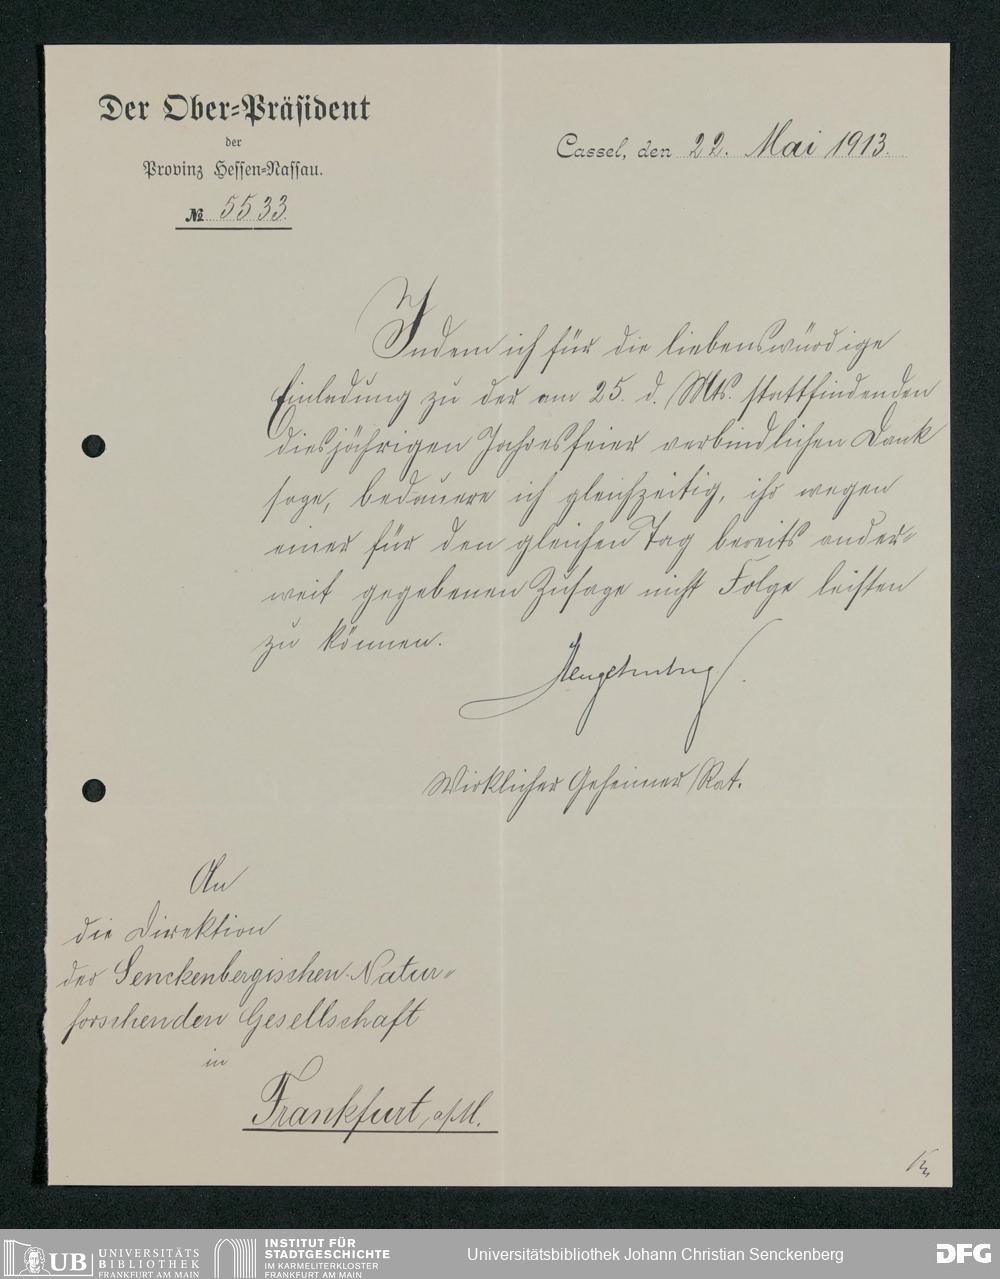 Der Ober-Präsident
der
Provinz Hessen-Nassau.
№ 5533.
Cassel, den 22. Mai 1913.
Indem ich für die liebenswürdige
Einladung zu der am 25. d. Mts. stattfindenden
diesjährigen Jahresfeier verbindlichen Dank
sage, bedauere ich gleichzeitig, ihr wegen
einer für den gleichen Tag bereits ander-
weit gegebenen Zusage nicht Folge leisten
zu können.
Hengstenberg.
Wirklicher Geheimer Rat.
An
die Direktion
der Senckenbergischen Natur-
forschenden Gesellschaft
in
Frankfurt a/M.
UB UNIVERSITÄTS
BIBLIOTHEK
FRANKFURT AM MAIN
INSTITUT FÜR
STADTGESCHICHTE
IM KARMELITERKLOSTER
FRANKFURT AM MAIN
Universitätsbibliothek Johann Christian Senckenberg
DFG